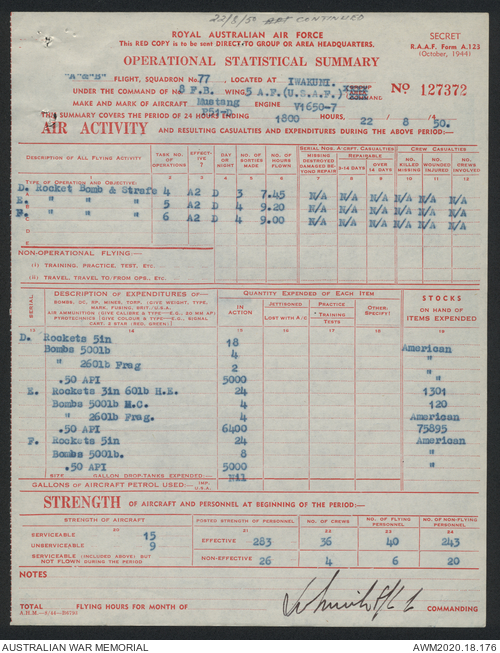 22/8/50 ART CONTINUED
ROYAL AUSTRALIAN AIR FORCE
This RED COPY is to be sent DIRECT TO GROUP OR AREA HEADQUARTERS.
SECRET
R.A.A.F. Form A.123
(October, 1944)
OPERATIONAL STATISTICAL SUMMARY
"A"2"S" FLIGHT, SQUADRON No. 77, LOCATED AT IWAKUNI.
UNDER THE COMMAND OF No. 8 F.B. WING 5 A.F.(U.S.A.F.)
No 127372
MAKE AND MARK OF AIRCRAFT Mustang ENGINE V1650-7
F51D
THIS SUMMARY COVERS THE PERIOD OF 24 HOURS ENDING 1800 HOURS, 22 8 50.
AIR ACTIVITY AND RESULTING CASUALTIES AND EXPENDITURES DURING THE ABOVE PERIOD:—
DESCRIPTION OF ALL FLYING ACTIVITY TASK NO. OF OPERATIONS EFFECTIVE ? DAY OR NIGHT NO. OF SORTIES MADE NO. OF HOURS FLOWN SERIAL NOS. A-CPT. CASUALTIES CREW CASUALTIES
MISSING DESTROYED DAMAGED BEYOND REPAIR REPAIRABLE 0-14 DAYS OVER 14 DAYS NO. KILLED MISSING NO. WOUNDED INJURED NO. CREWS INVOLVED
1 2 3 4 5 6 7 8 9 10 11 12
TYPE OF OPERATION AND OBJECTIVE:
D. Rocket Bomb & Strafe 4 A2 D 3 7.45 N/A N/A N/A N/A N/A N/A
E. " " " 5 A2 D 4 9.20 N/A N/A N/A N/A N/A N/A
F. " " " 6 A2 D 4 9.00 N/A N/A N/A N/A N/A N/A
D
E
NON-OPERATIONAL FLYING:—
(I) TRAINING, PRACTICE, TEST, ETC.
(II) TRAVEL, TRAVEL TO/FROM OPS., ETC.
SERIAL DESCRIPTION OF EXPENDITURES OF— QUANTITY EXPENDED OF EACH ITEM STOCKS
BOMBS, DC, SP, MINES, TORP. (GIVE WEIGHT, TYPE, MARK, FUSING, BRIT./U.S.A.)
AIR AMMUNITION (GIVE CALIBRE & TYPE—E.G., 20 MM AP)
PYROTECHNICS (GIVE COLOUR & TYPE—E.G., SIGNAL CART. 2 STAR (RED, GREEN).)
IN ACTION JETTISONED LOST WITH A/C PRACTICE TRAINING TESTS OTHER: SPECIFY: ON HAND OF ITEMS EXPENDED
13 14 15 16 17 18 19
D. Rockets 5in 18 American
Bombs 500lb 4 "
" 260lb Frag 2 "
.50 API 5000 "
E. Rockets 3in 60lb H.E. 24 1301
Bombs 500lb H.C. 4 120
" 260lb Frag. 4 American
.50 API 6400 75895
F. Rockets 5in 24 American
Bombs 500lb. 8 "
.50 API 5000 "
GALLON DROP-TANKS EXPENDED:— Nil
GALLONS OF AIRCRAFT PETROL USED:— IMP. U.S.A.
STRENGTH OF AIRCRAFT AND PERSONNEL AT BEGINNING OF THE PERIOD:—
STRENGTH OF AIRCRAFT POSTED STRENGTH OF PERSONNEL NO. OF CREWS NO. OF FLYING PERSONNEL NO. OF NON-FLYING PERSONNEL
20 21 22 23 24
SERVICEABLE 15 EFFECTIVE 283 36 40 243
UNSERVICEABLE 9
SERVICEABLE (INCLUDED ABOVE) BUT NOT FLOWN DURING THE PERIOD NON-EFFECTIVE 26 4 6 20
NOTES
TOTAL FLYING HOURS FOR MONTH OF COMMANDING
AUSTRALIAN WAR MEMORIAL
AWM2020.18.176